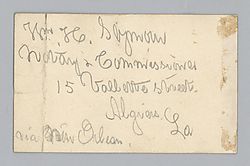 Wm. H. Seymour
Notary & Commissioner
15 Vallette street.
Algiers, La
via New Orleans.